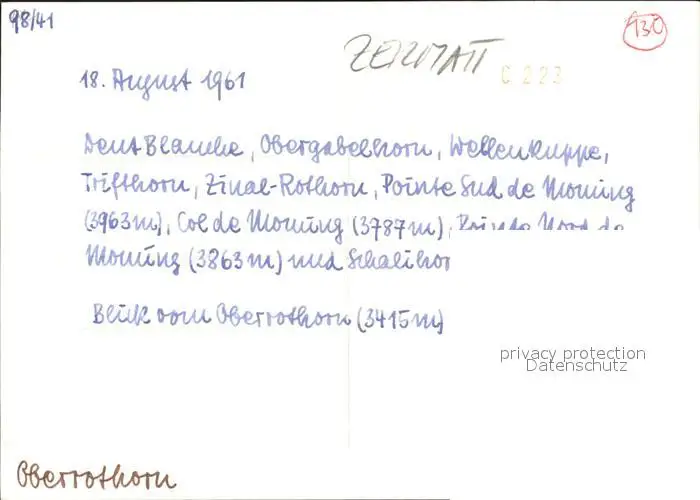 98/41
130
ZERMATT
C 223
18. August 1961
Dent Blanche, Obergabelhorn, Wellenkuppe,
Trifthorn, Zinal-Rothorn, Pointe Sud de Moming
(3963m), Col de Moming (3787m), Pointe Nord de
Moming (3863m) und Schalihor
Blick vom Oberrothorn (3415m)
privacy protection
Datenschutz
Oberrothorn